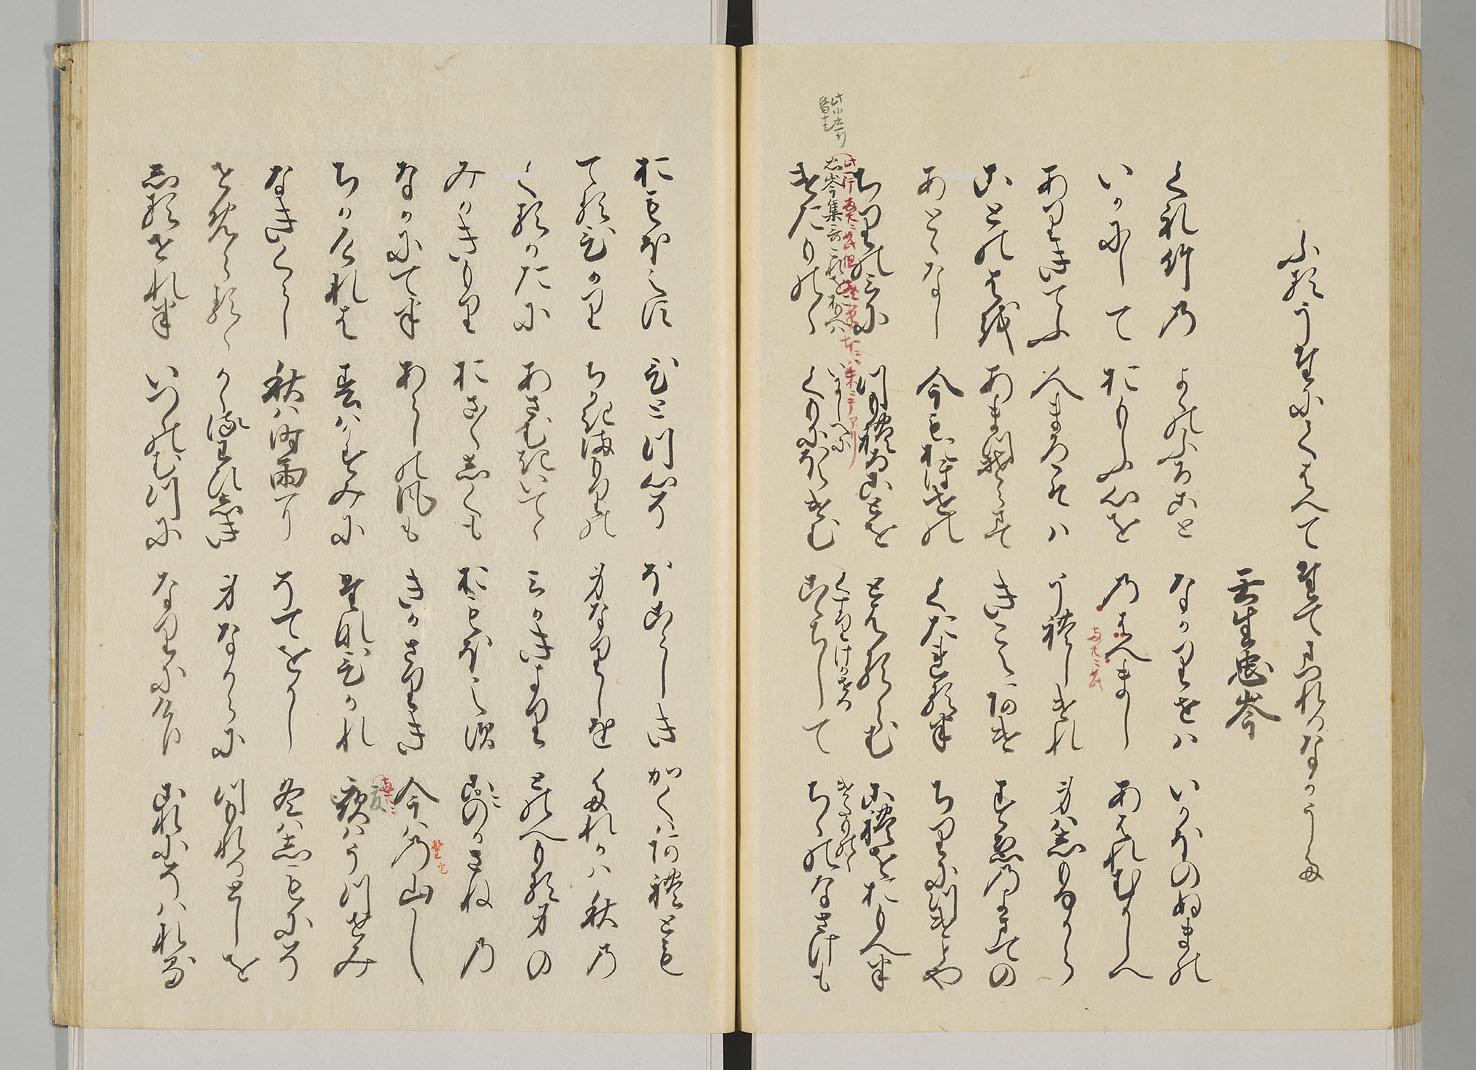 ふるうたにくはへてたてまつれるなかうた
壬生忠岑
くれ竹の よゝのふること なかりせは いかほのぬまの
いかにして おもふ心を のはへまし あはれむかしへ
ありきてふ 人まろこそは うれしけれ 身はしもなから
ことのはを あまつそらまて きこえあけ すゑのよまての
あとゝなし 今もおほせの くたれるは ちりにつけとや
ちりの身に つもれることを とはるらむ これをおもへは
忠岑集云これをおもへは いにしへに くすりけかせる けたものゝ
けたものゝ くもにほえけむ こゝちして ちゝのなさけも
おもほえす ひとつ心そ ほこらしき かくはあれとも
てるひかり ちかきまもりの 身なりしを たれかは秋の
くるかたに あさむきいてゝ みかきより とのへもる身の
みかきもり おさ〳〵しくも おもほえす こゝのかさねの
なかにては あらしの風も きかさりき 今はの山し
ちかけれは 春はかすみに たなひかれ 夏はうつせみ
なきくらし 秋は時雨に そてをかし 冬はしもにそ
せめらるゝ かゝるわひしき 身なからに つもれるとしを
しるせれは いつゝのむつに なりにけり これにそはれる